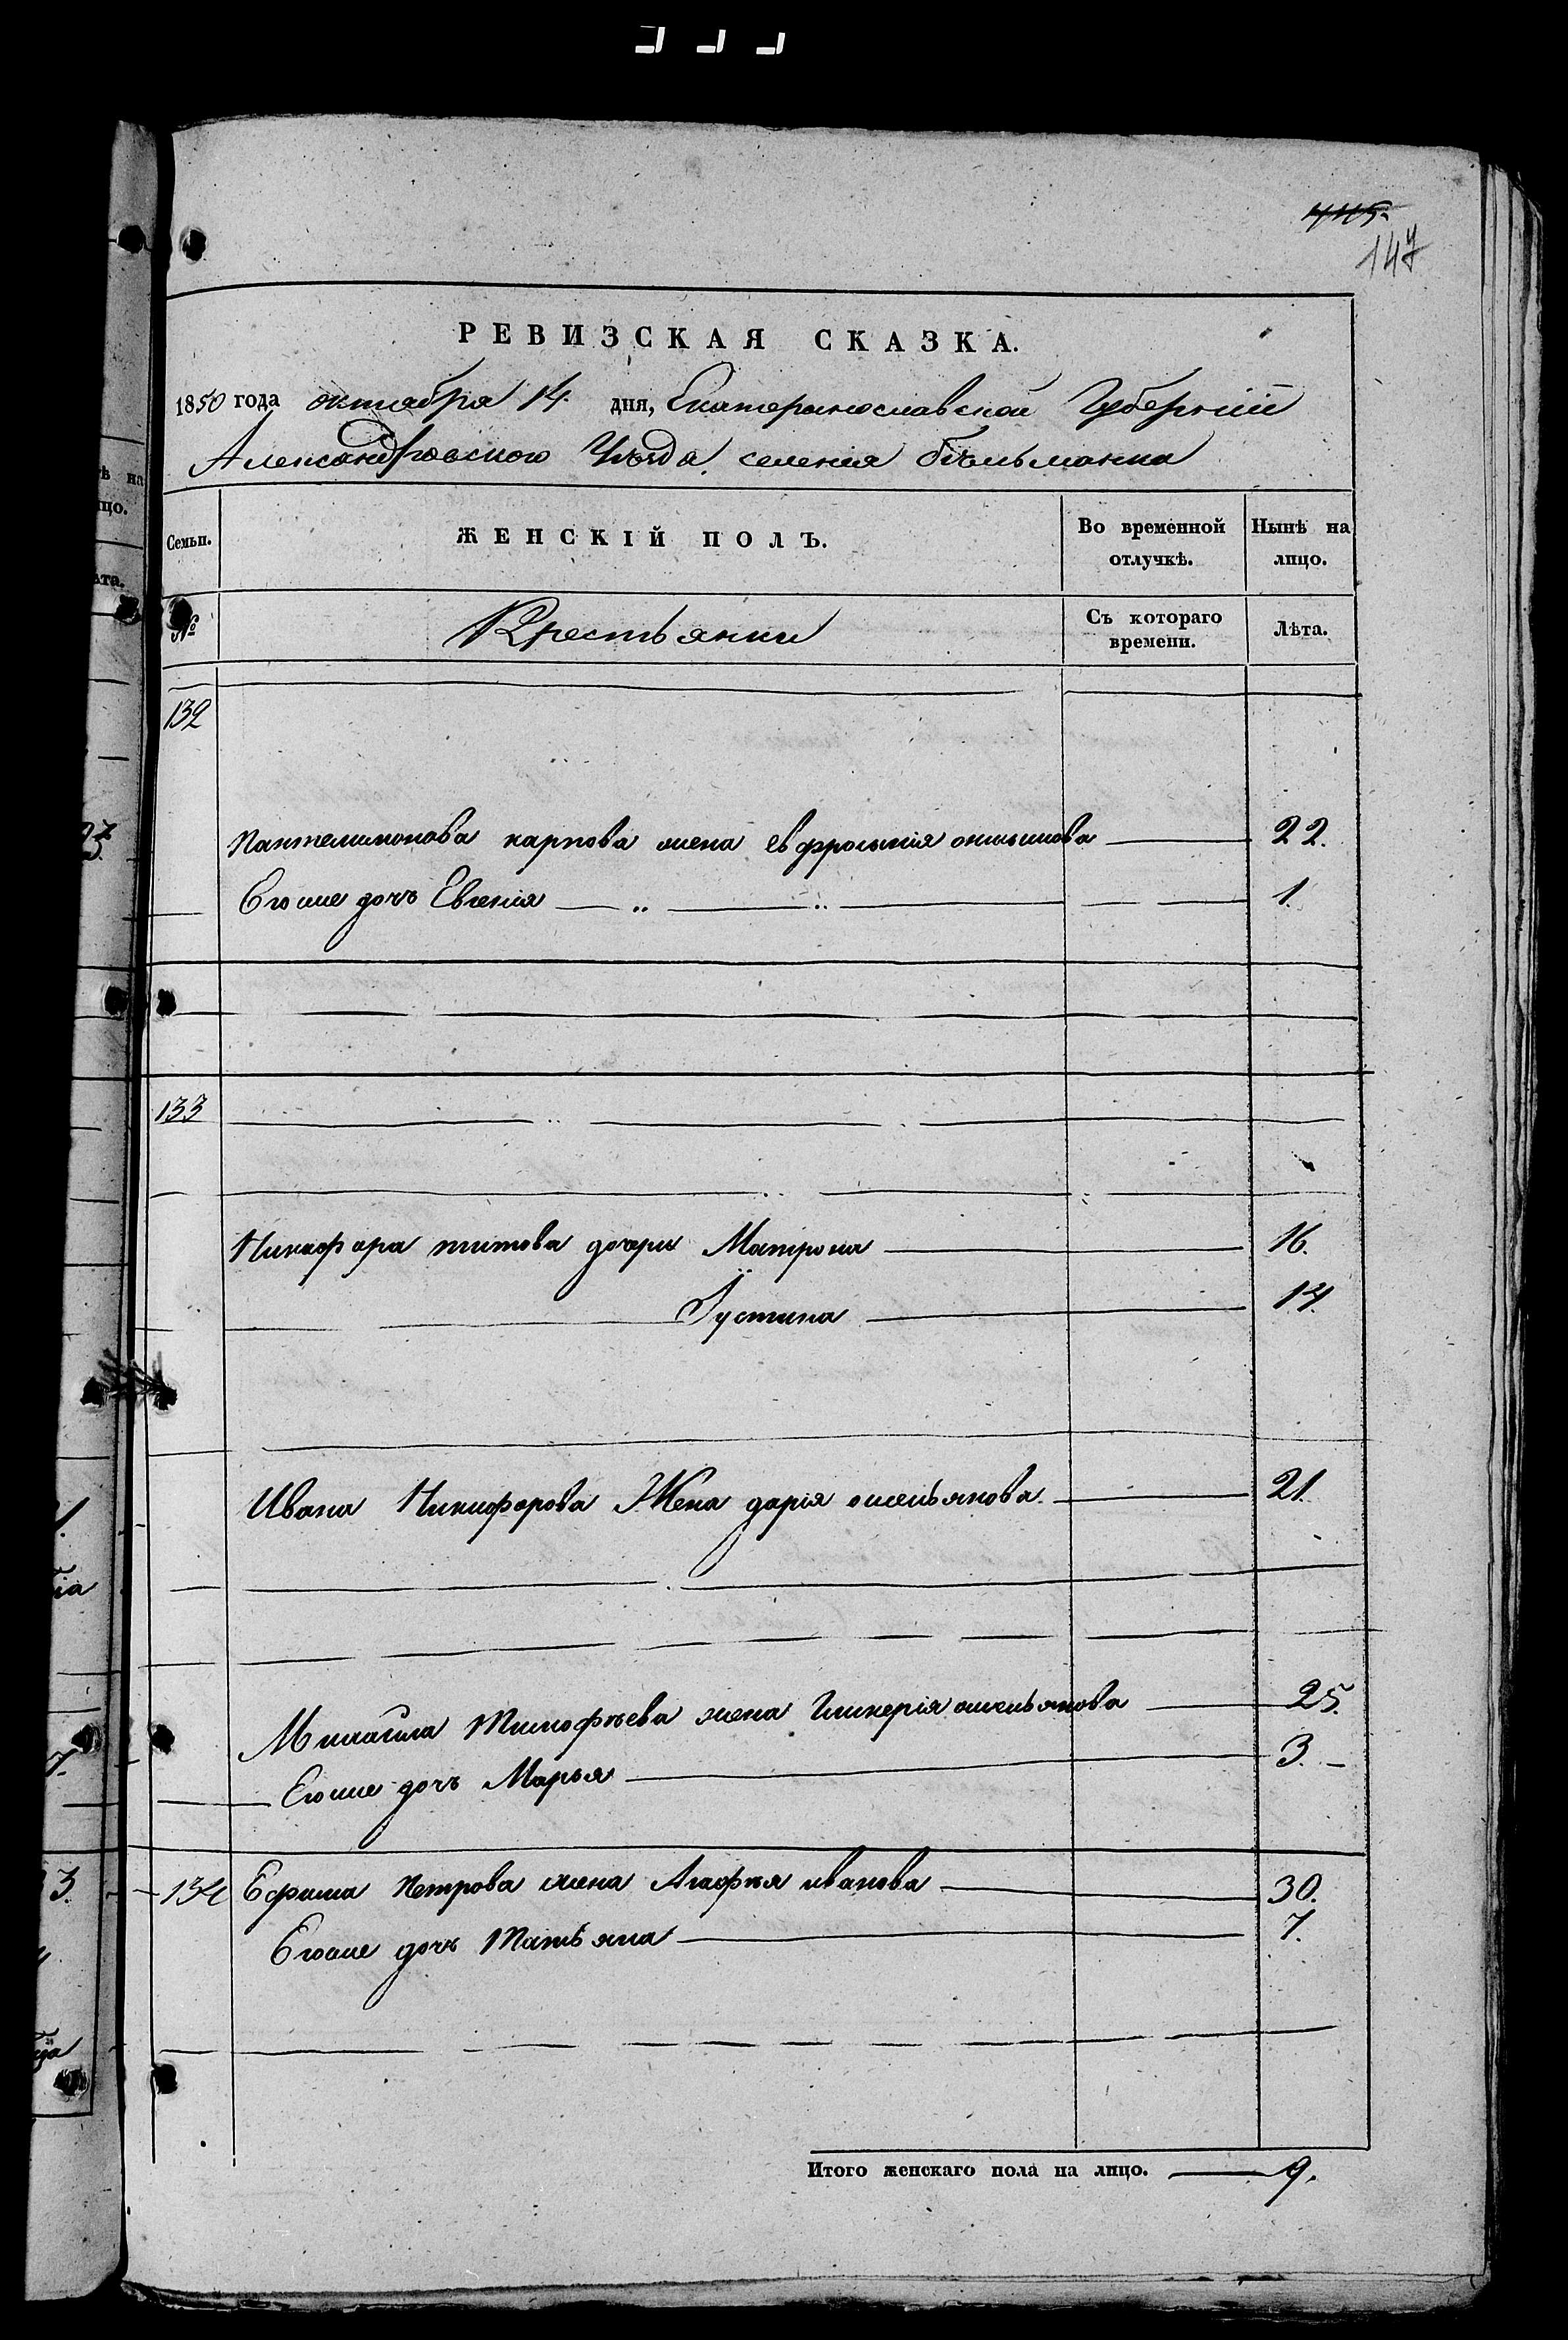 147
РЕВИЗСКАЯ СКАЗКА.
1850 года октября 14 дня, Екатеринославской Губернiи
Александровского Уѣзда, селенiя Бѣльманки
Семьи.
ЖЕНСКIЙ ПОЛЪ.
Во временной отлучкѣ.
Нынѣ на лицо.
№
Крестьянки
Съ котораго времени.
Лѣта.
132
Пантелимонова карпова жена евфросинiя 22.
Егоже дочь Евгенiя 1.
133
Никифора титова дочери Матрона 16.
Iустина 14.
Ивана Никифорова Жена дарiя омельянова. 21.
Михаила Тимофѣева жена Гликерiя омельянова 25.
Егоже дочь Марья 3.
134 Ефима Петрова жена Агафья иванова 30.
Егоже дочь Татьяна 7.
Итого женскаго пола на лицо. 9.